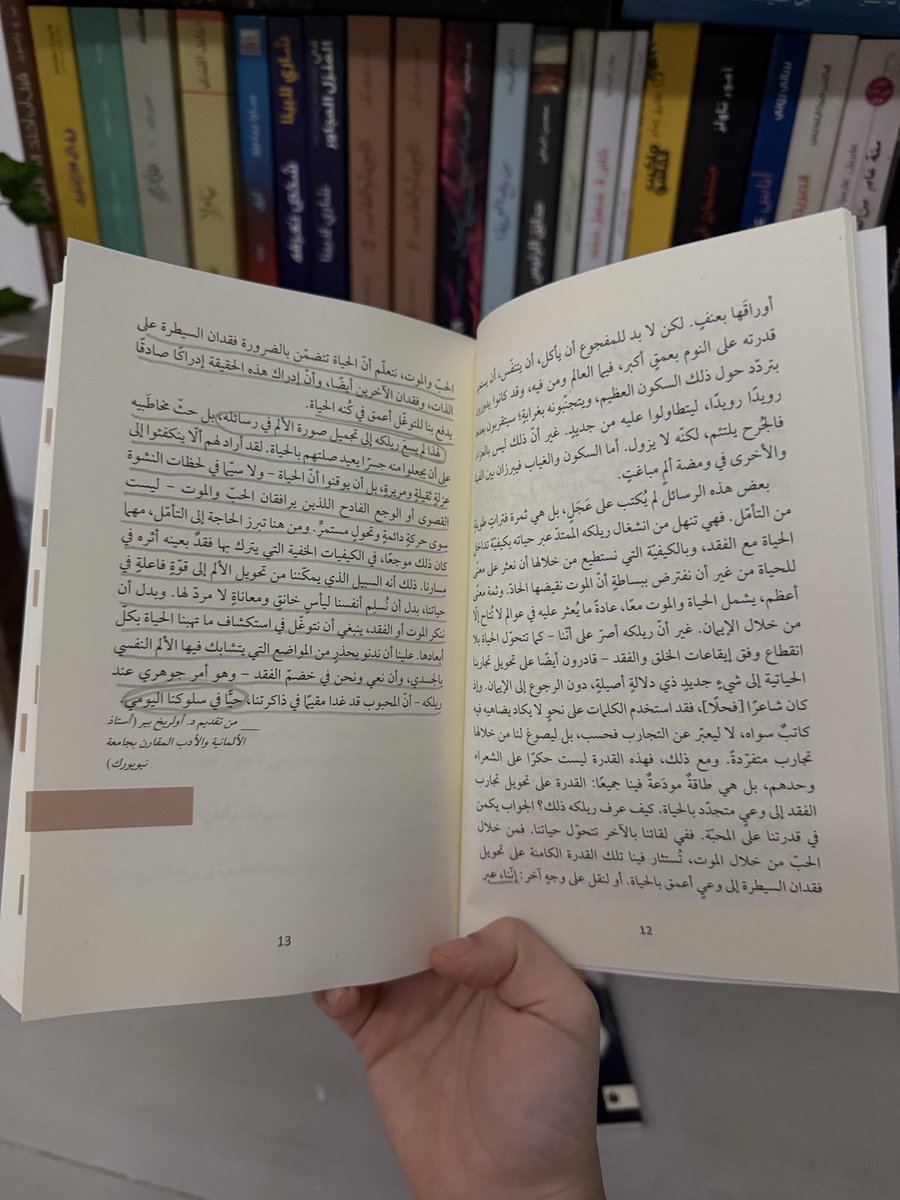 أوراقَها بعنفٍ. لكن لا بد للمفجوع أن يأكل، أن يتنفّس، أن
قدرته على النوم بعمقٍ أكبر، فيما العالم ومن فيه، وقد كانوا
بتردّد حول ذلك السكون العظيم، ويتجنّبونه بغرابةٍ؛ سيقتربون
رويدًا رويدًا، ليتطاولوا عليه من جديد. غير أنّ ذلك ليس
فالجُرح يلتئم، لكنّه لا يزول. أما السكون والغياب فيبرزان بين
والأخرى في ومضة ألمٍ مباغتٍ.
بعض هذه الرسائل لم يُكتب على عَجَلٍ، بل هي ثمرة فتراتٍ طويلة
من التأمّل. فهي تنهل من انشغال ريلكه الممتدّ عبر حياته بكيفيّة تداخل
الحياة مع الفقد، وبالكيفيّة التي نستطيع من خلالها أن نعثر على معنًى
للحياة من غير أن نفترض ببساطةٍ أنّ الموت نقيضها الحادّ. وثمة معنًى
أعظم، يشمل الحياة والموت معًا، عادةً ما يُعثر عليه في عوالم لا تُتاح إلّا
من خلال الإيمان. غير أنّ ريلكه أصرّ على أنّنا – كما تتحوّل الحياة بلا
انقطاع وفق إيقاعات الخلق والفقد – قادرون أيضًا على تحويل تجاربنا
الحياتية إلى شيءٍ جديدٍ ذي دلالةٍ أصيلةٍ، دون الرجوع إلى الإيمان. وإذ
كان شاعرًا [فحلًا]، فقد استخدم الكلمات على نحوٍ لا يكاد يضاهيه فيه
كاتبٌ سواه، لا يعبّر عن التجارب فحسب، بل ليصوغ لنا من خلالها
تجارب متفرّدةً. ومع ذلك، فهذه القدرة ليست حكرًا على الشعراء
وحدهم، بل هي طاقةٌ مودَعةٌ فينا جميعًا: القدرة على تحويل تجارب
الفقد إلى وعيٍ متجدّد بالحياة. كيف عرف ريلكه ذلك؟ الجواب يكمن
في قدرتنا على المحبّة. ففي لقائنا بالآخر تتحوّل حياتنا. فمن خلال
الحبّ من خلال الموت، تُستثار فينا تلك القدرة الكامنة على تحويل
فقدان السيطرة إلى وعيٍ أعمق بالحياة. أو لنقل على وجهٍ آخر: إنّنا، عبر
12
الحبّ والموت، نتعلّم أنّ الحياة تتضمّن بالضرورة فقدان السيطرة على
الذات، وفقدان الآخرين أيضًا، وأنّ إدراك هذه الحقيقة إدراكًا صادقًا
يدفع بنا للتوغّل أعمق في كُنه الحياة.
لهذا لم يسعَ ريلكه إلى تجميل صورة الألم في رسائله، بل حثّ مخاطَبيه
على أن يجعلوا منه جسرًا يعيد صلتهم بالحياة. لقد أراد لهم ألّا ينكفئوا إلى
عزلةٍ ثقيلةٍ ومريرة، بل أن يوقنوا أنّ الحياة – ولا سيّما في لحظات النشوة
القصوى أو الوجع الفادح اللذين يرافقان الحبّ والموت – ليست
سوى حركةٍ دائمةٍ وتحولٍ مستمرٍّ. ومن هنا تبرز الحاجة إلى التأمّل، مهما
كان ذلك موجعًا، في الكيفيات الخفية التي يترك بها فقدٌ بعينه أثره في
مسارنا. ذلك أنه السبيل الذي يمكّننا من تحويل الألم إلى قوّةٍ فاعلةٍ في
حياتنا، بدل أن نُسلِم أنفسنا ليأسٍ خانقٍ ومعاناةٍ لا مردّ لها. وبدل أن
ننكر الموت أو الفقد، ينبغي أن نتوغّل في استكشاف ما تهبنا الحياة بكلّ
أبعادها. علينا أن ندنو بحذرٍ من المواضع التي يتشابك فيها الألم النفسي
بالجسدي، وأن نعي ونحن في خضمّ الفقد – وهو أمر جوهري عند
ريلكه – أنّ المحبوب قد غدا مقيمًا في ذاكرتنا، حيًّا في سلوكنا اليومي.
من تقديم د. أولريخ بير (أستاذ
الألمانية والأدب المقارن بجامعة
نيويورك)
13
شاري لابينا
شخص نعرفه
المنزل المجاور
شاري لابينا
حدائق الرئيس